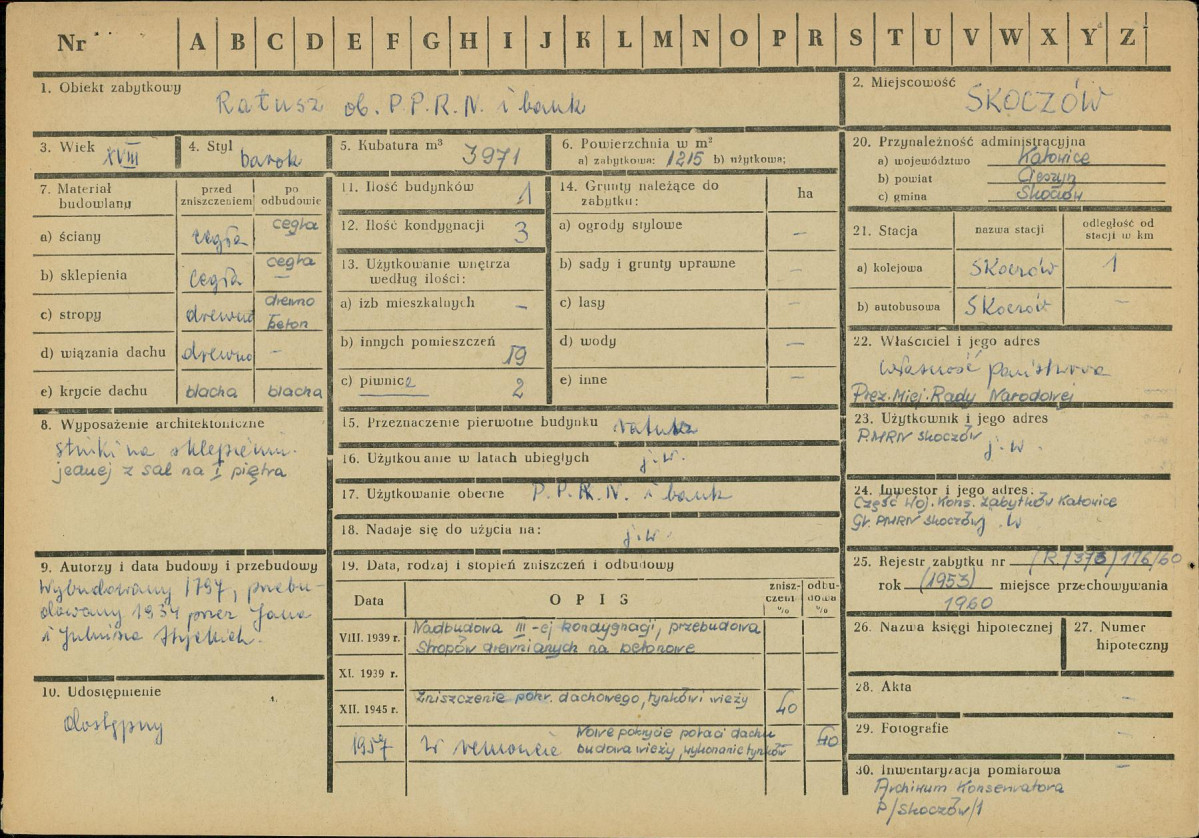 Nr A B C D E F G H I J K L M N O P R S T U V W X Y Z
1. Obiekt zabytkowy
Ratusz ob. P.P.R.N. i bank
2. Miejscowość
SKOCZÓW
3. Wiek XVIII
4. Styl barok
5. Kubatura m³ 3971
6. Powierzchnia w m²
a) zabytkowa: 1215 b) użytkowa:
7. Materiał budowlany
przed zniszczeniem
po odbudowie
a) ściany cegła cegła
b) sklepienia cegła cegła –
c) stropy drewno drewno beton
d) wiązania dachu drewno –
e) krycie dachu blacha blacha
8. Wyposażenie architektoniczne
stiuki na sklepieniu
jednej z sal na I piętra
9. Autorzy i data budowy i przebudowy
Wybudowany 1797, przebu-
dowany 1934 przez Jana
i
10. Udostępnienie
dostępny
11. Ilość budynków 1
12. Ilość kondygnacji 3
13. Użytkowanie wnętrza
według ilości:
a) izb mieszkalnych –
b) innych pomieszczeń 19
c) piwnic 2
14. Grunty należące do
zabytku:
ha
a) ogrody stylowe –
b) sady i grunty uprawne –
c) lasy –
d) wody –
e) inne –
15. Przeznaczenie pierwotne budynku ratusz
16. Użytkowanie w latach ubiegłych j.w.
17. Użytkowanie obecne P.P.R.N. i bank
18. Nadaje się do użycia na: j.w.
19. Data, rodzaj i stopień zniszczeń i odbudowy
Data
OPIS
znisz-
czeń
%
odbu-
dowa
%
VIII. 1939 r. Nadbudowa III-ej kondygnacji, przebudowa
stropów drewnianych na betonowe
XI. 1939 r.
XII. 1945 r. Zniszczenie pokr. dachowego, tynków i wieży 40
1957 W remoncie Nowe pokrycie połaci dachu
budowa wieży, wykonanie tynków 40
20. Przynależność administracyjna
a) województwo Katowice
b) powiat Cieszyn
c) gmina Skoczów
21. Stacja
nazwa stacji
odległość od
stacji w km
a) kolejowa SKoczów 1
b) autobusowa SKoczów –
22. Właściciel i jego adres
własność państwowa
Prez. Miej. Rady Narodowej
23. Użytkownik i jego adres
P.MRN Skoczów
j.w.
24. Inwestor i jego adres:
Część Woj. Kons. Zabytków Katowice
Gł. PMRN Skoczów j.w
25. Rejestr zabytku nr (R./373) 176/60
rok (1953) miejsce przechowywania
1960
26. Nazwa księgi hipotecznej
27. Numer
hipoteczny
28. Akta –
29. Fotografie –
30. Inwentaryzacja pomiarowa –
Archiwum Konserwatora
P/Skoczów/1